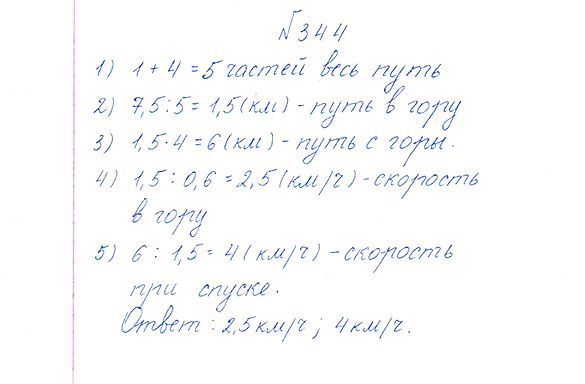 №344
1) 1 + 4 = 5 частей весь путь
2) 7,5 : 5 = 1,5 (км) - путь в гору
3) 1,5 · 4 = 6 (км) - путь с горы.
4) 1,5 : 0,6 = 2,5 (км/ч) - скорость
в гору
5) 6 : 1,5 = 4 (км/ч) - скорость
при спуске.
Ответ : 2,5 км/ч ; 4 км/ч.